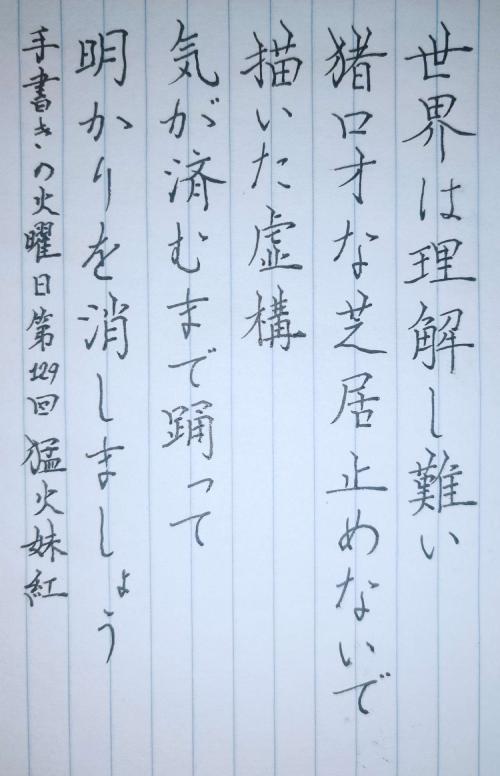 世界は理解し難い
猪口才な芝居止めないで
描いた虚構
気が済むまで踊って
明かりを消しましょう
手書きの火曜日第129回 猛火妹紅